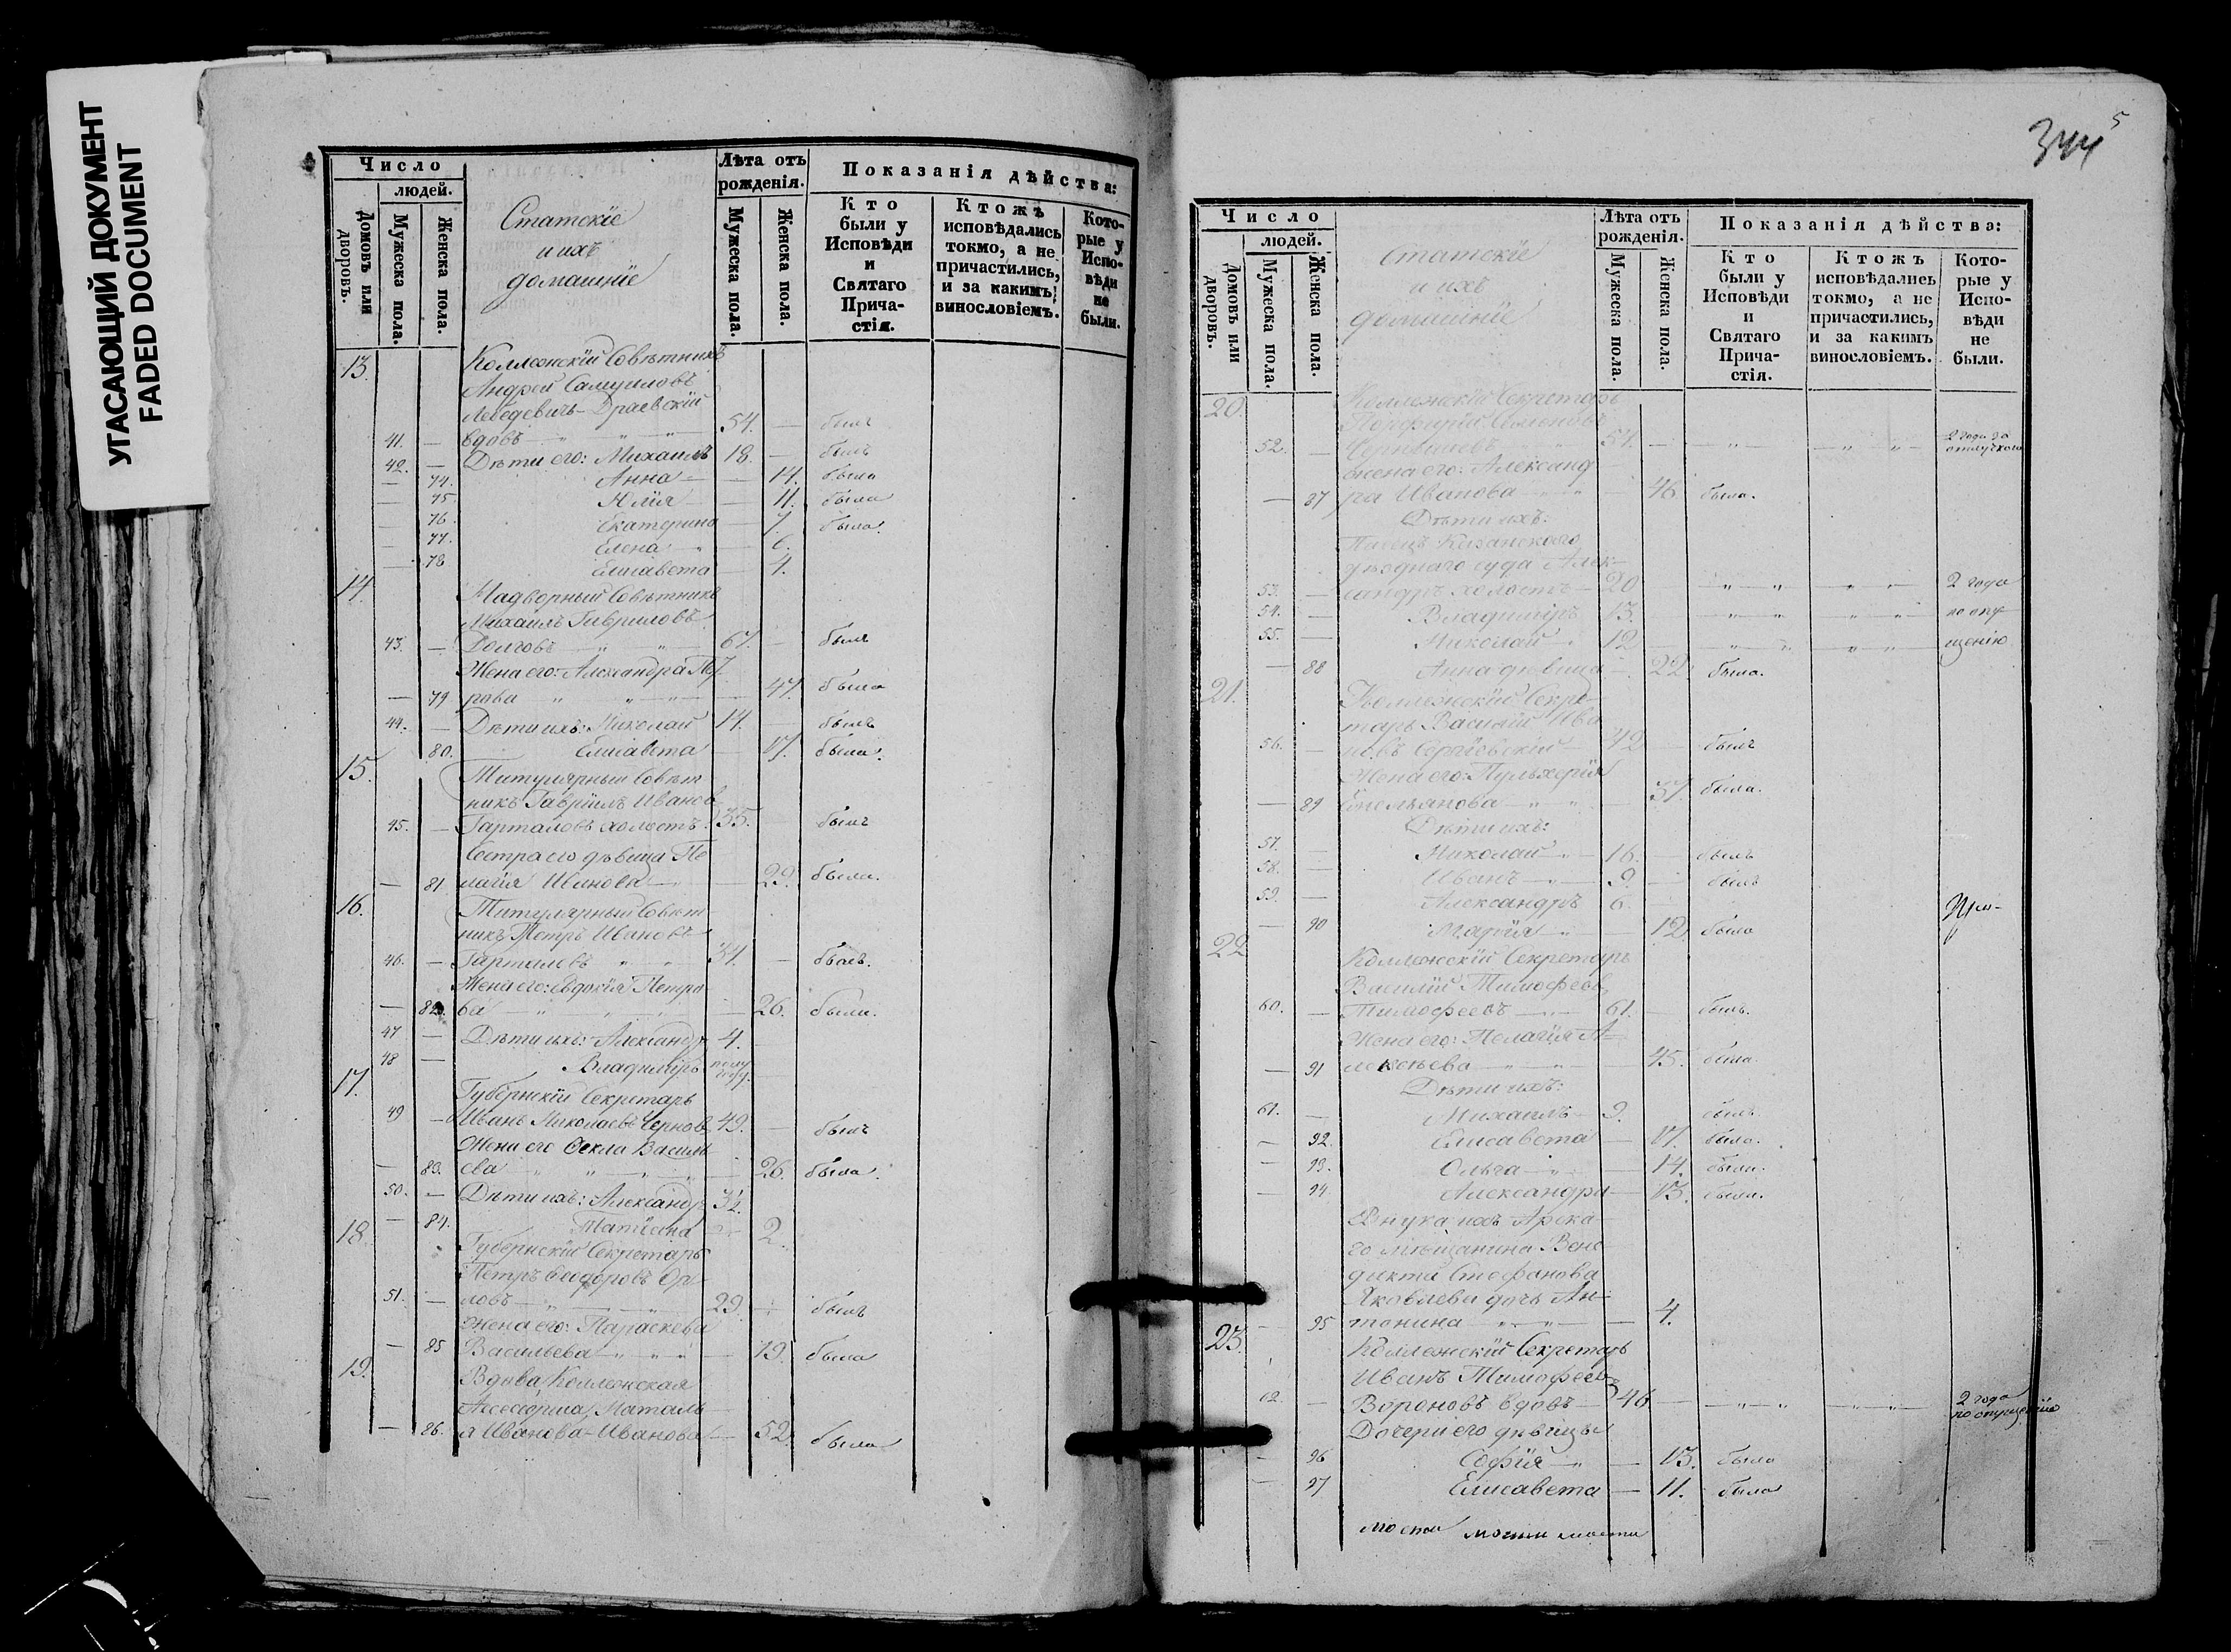 УГАСАЮЩИЙ ДОКУМЕНТ
FADED DOCUMENT
Число
людей.
Домовъ или дворовъ.
Мужеска пола.
Женска пола.
Статскіе
и ихъ
домашніе
Лѣта отъ
рожденія.
Мужеска пола.
Женска пола.
Показанія дѣйства:
Кто
были у
Исповѣди
и
Святаго
Прича-
стія.
Ктожъ
исповѣдались
токмо, а не
причастились,
и за какимъ
винословіемъ.
Кото-
рые у
Испо-
вѣди
не
были.
13. Коллежскій Совѣтникъ
Андрей Самуиловъ
Лебедевичъ-Драевскій
41. — вдовъ — " — " — 54. — былъ
42. — Дѣти его: Михаилъ 18. — былъ
— 74. Анна — — 14. была
— 75. Юлія — — 11. была
— 76. Екатерина — 7. была.
— 77. Елена — " — 6.
— 78 Елисавета — 4.
14. Надворный Совѣтникъ
Михаилъ Гавриловъ
43. — Долговъ — " — " — 67. — былъ
Жена его: Александра Пет
— 79 рова — " — " — — 47. была
44. — Дѣти ихъ: Николай 14. — былъ
80. Елисавета — 17. была.
15. Титулярный Совѣт-
никъ Гавріилъ Иванов
45. — Гарталовъ холостъ. 35. — былъ
Сестра его дѣвица Пе
— 81. лагія Иванова — " — — 29. была.
16. Титулярный Совѣт-
никъ Петръ Ивановъ
46. — Гарталовъ " — " 34. —
Жена его: Евдокія Петро
— 82. ва — " — " — — 26. была.
47 — Дѣти ихъ: Александр 4. —
48 — Владимиръ
17. Губернскій Секретарь
49 — Иванъ Николаевъ Чернов 49. — былъ
Жена его Ѳекла Василь
— 83. ева — " — " — — 26. была.
50. — Дѣти ихъ: Александр 3½.
— 84. Татіана — 2.
18. Губернскій Секретарь
Петръ Ѳеодоровъ Ор-
51. — ловъ — " — " — 29. — былъ
Жена его: Параскева
— 85 Васильева — " " " — 19. была
19. Вдова Коллежская
Ассесорша Наталь-
— 86. я Иванова-Иванова — 52. была
344
5
Число
людей.
Домовъ или дворовъ.
Мужеска пола.
Женска пола.
Статскіе
и ихъ
домашніе
Лѣта отъ
рожденія.
Мужеска пола.
Женска пола.
Показанія дѣйства:
Кто
были у
Исповѣди
и
Святаго
Прича-
стія.
Ктожъ
исповѣдались
токмо, а не
причастились,
и за какимъ
винословіемъ.
Кото-
рые у
Испо-
вѣди
не
были.
20. Коллежскій Секретарь
Порфирій Семеновъ
52. — Чернышевъ 54. — — " — — " — " — 2 года за
отлучкою
Жена его: Александ
— 87 ра Иванова — " — — 46. была.
Дѣти ихъ:
Писецъ Казанского
уѣзднаго суда Алек-
53. — сандръ холостъ — 20 — " — " — " — " — 2 года
54. — Владимиръ 13. — " — " — " — " — по опу-
55. — Николай 12 — " — " — " — " — щенію
— 88 Анна дѣвица — 22 была.
21. Коллежскій Секре-
тарь Василій Ива
56. — новъ Сергіевскій 42 — былъ
Жена его: Пульхерія
— 89 Емельянова — " — " — 37. была.
Дѣти ихъ:
57. — Николай — " — 16. — былъ
58. — Иванъ — " — 9. — былъ
59. — Александръ 6. —
— 90 Марія — " — — 12 была
22 Коллежскій Секретарь
Василій Тимофеев
60. — Тимофеевъ — " — 61. — былъ.
Жена его: Пелагія А-
— 91 лексѣева — " — — 45. была.
Дѣти ихъ:
61. — Михаилъ — 9. былъ.
— 92. Елисавета — 17. была.
— 93. Ольга — " — — 14. была.
— 94. Александра — 13. была.
Внука ихъ Арска-
го мѣщанина Вене-
дикта Стефанова
Яковлева дочь Ан-
— 95 тонина — " — " — — 4.
23. Коллежскій Секретарь
Иванъ Тимофеевъ
62. — Вороновъ вдовъ — 46 — — " — " — " — " — 2 года
по опущенію
Дочери его дѣвицы
— 96 Софія — " — 13. была
— 97 Елисавета — 11. была